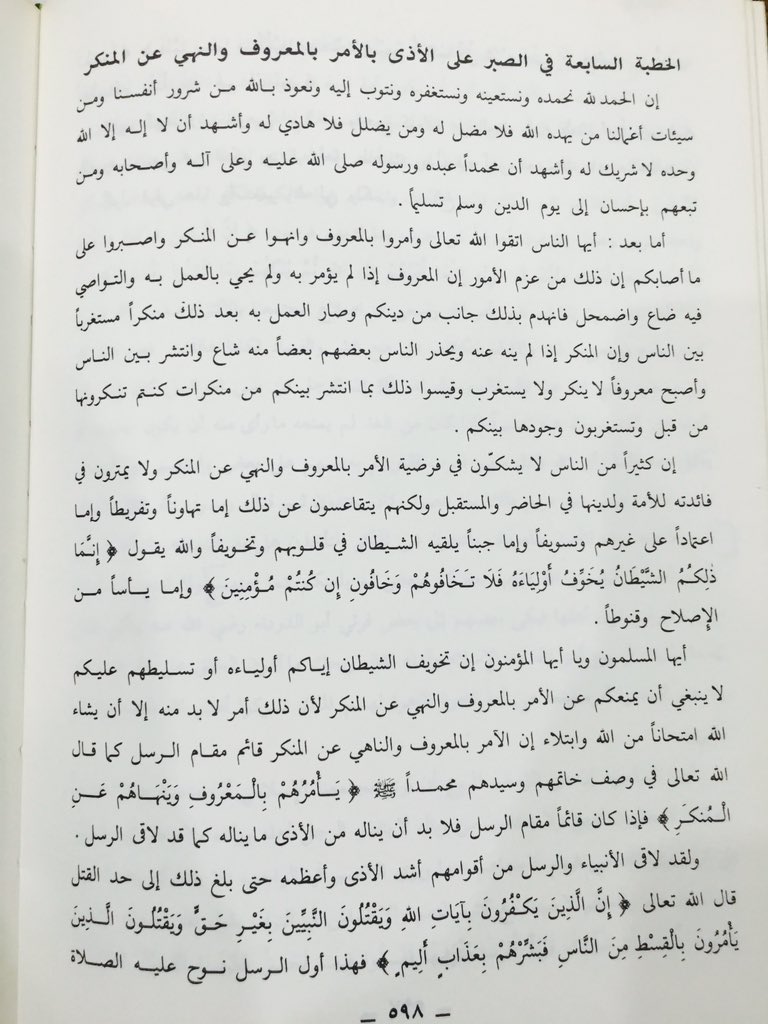 الخطبة السابعة في الصبر على الأذى بالأمر بالمعروف والنهي عن المنكر
إن الحمد لله نحمده ونستعينه ونستغفره ونتوب إليه ونعوذ بالله من شرور أنفسنا ومن
سيئات أعمالنا من يهده الله فلا مضل له ومن يضلل فلا هادي له وأشهد أن لا إله إلا الله
وحده لا شريك له وأشهد أن محمداً عبده ورسوله صلى الله عليه وعلى آله وأصحابه ومن
تبعهم بإحسان إلى يوم الدين وسلم تسليماً .
أما بعد : أيها الناس اتقوا الله تعالى وأمروا بالمعروف وانهوا عن المنكر واصبروا على
ما أصابكم إن ذلك من عزم الأمور إن المعروف إذا لم يؤمر به ولم يحي بالعمل به والتواصي
فيه ضاع واضمحل فانهدم بذلك جانب من دينكم وصار العمل به بعد ذلك منكراً مستغرباً
بين الناس وإن المنكر إذا لم ينه عنه ويحذر الناس بعضهم بعضاً منه شاع وانتشر بين الناس
وأصبح معروفاً لا ينكر ولا يستغرب وقيسوا ذلك بما انتشر بينكم من منكرات كنتم تنكرونها
من قبل وتستغربون وجودها بينكم .
إن كثيراً من الناس لا يشكّون في فرضية الأمر بالمعروف والنهي عن المنكر ولا يمترون في
فائدته للأمة ولدينها في الحاضر والمستقبل ولكنهم يتقاعسون عن ذلك إما تهاوناً وتفريطاً وإما
اعتماداً على غيرهم وتسويفاً وإما جبناً يلقيه الشيطان في قلوبهم وتخويفاً والله يقول ﴿ إِنَّمَا
ذَٰلِكُمُ الشَّيْطَانُ يُخَوِّفُ أَوْلِيَاءَهُ فَلَا تَخَافُوهُمْ وَخَافُونِ إِن كُنتُمْ مُؤْمِنِينَ ﴾ وإما يأساً من
الإصلاح وقنوطاً .
أيها المسلمون ويا أيها المؤمنون إن تخويف الشيطان إياكم أولياءه أو تسليطهم عليكم
لا ينبغي أن يمنعكم عن الأمر بالمعروف والنهي عن المنكر لأن ذلك أمر لا بد منه إلا أن يشاء
الله امتحاناً من الله وابتلاء إن الآمر بالمعروف والناهي عن المنكر قائم مقام الرسل كما قال
الله تعالى في وصف خاتمهم وسيدهم محمداً ﷺ ﴿ يَأْمُرُهُمْ بِالْمَعْرُوفِ وَيَنْهَاهُمْ عَنِ
الْمُنكَرِ ﴾ فإذا كان قائماً مقام الرسل فلا بد أن يناله من الأذى ما يناله كما قد لاقى الرسل .
ولقد لاقى الأنبياء والرسل من أقوامهم أشد الأذى وأعظمه حتى بلغ ذلك إلى حد القتل
قال الله تعالى ﴿ إِنَّ الَّذِينَ يَكْفُرُونَ بِآيَاتِ اللَّهِ وَيَقْتُلُونَ النَّبِيِّينَ بِغَيْرِ حَقٍّ وَيَقْتُلُونَ الَّذِينَ
يَأْمُرُونَ بِالْقِسْطِ مِنَ النَّاسِ فَبَشِّرْهُمْ بِعَذَابٍ أَلِيمٍ ﴾ فهذا أول الرسل نوح عليه الصلاة
– ٥٩٨ –